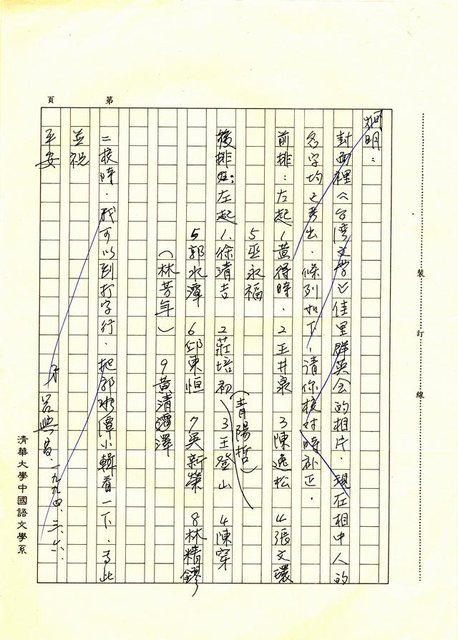 第
頁
裝
訂
線
炯明：
封面裡《台灣文學》佳里群英會的相片，現在相中人的
名字均已考出，條列如下，請你校对時补正。
前排：左起1.黃得時 2.王井泉 3.陳逸松 4.張文環
5巫永福
後排：左起1.徐清吉 2.莊培初（青陽哲） 3王登山 4陳穿
5郭水潭 6邱東恒 7吳新榮 8林精鏐
（林芳年） 9黃清澤
二校時，我可以到打字行，把郭水潭小輯看一下。专此
並祝
平安
呂興昌 一九九四.三.六.
清華大學中國語文學系